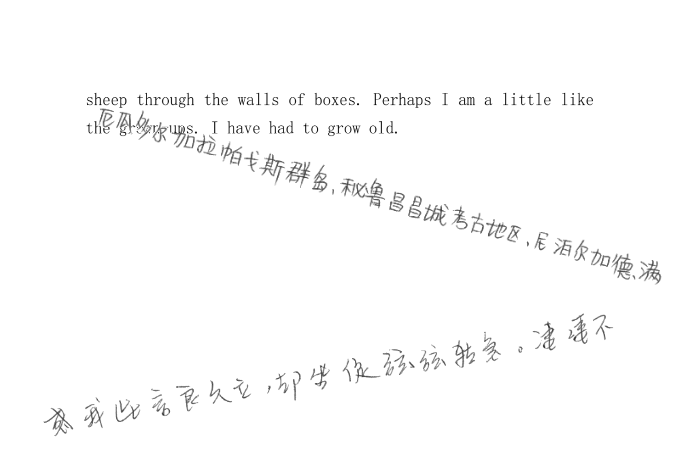 sheep through the walls of boxes. Perhaps I am a little like
the grown-ups. I have had to grow old.
厄瓜多尔加拉帕戈斯群岛、秘鲁昌昌城考古地区、尼泊尔加德满
感我此言良久立，却坐促弦弦转急。凄凄不